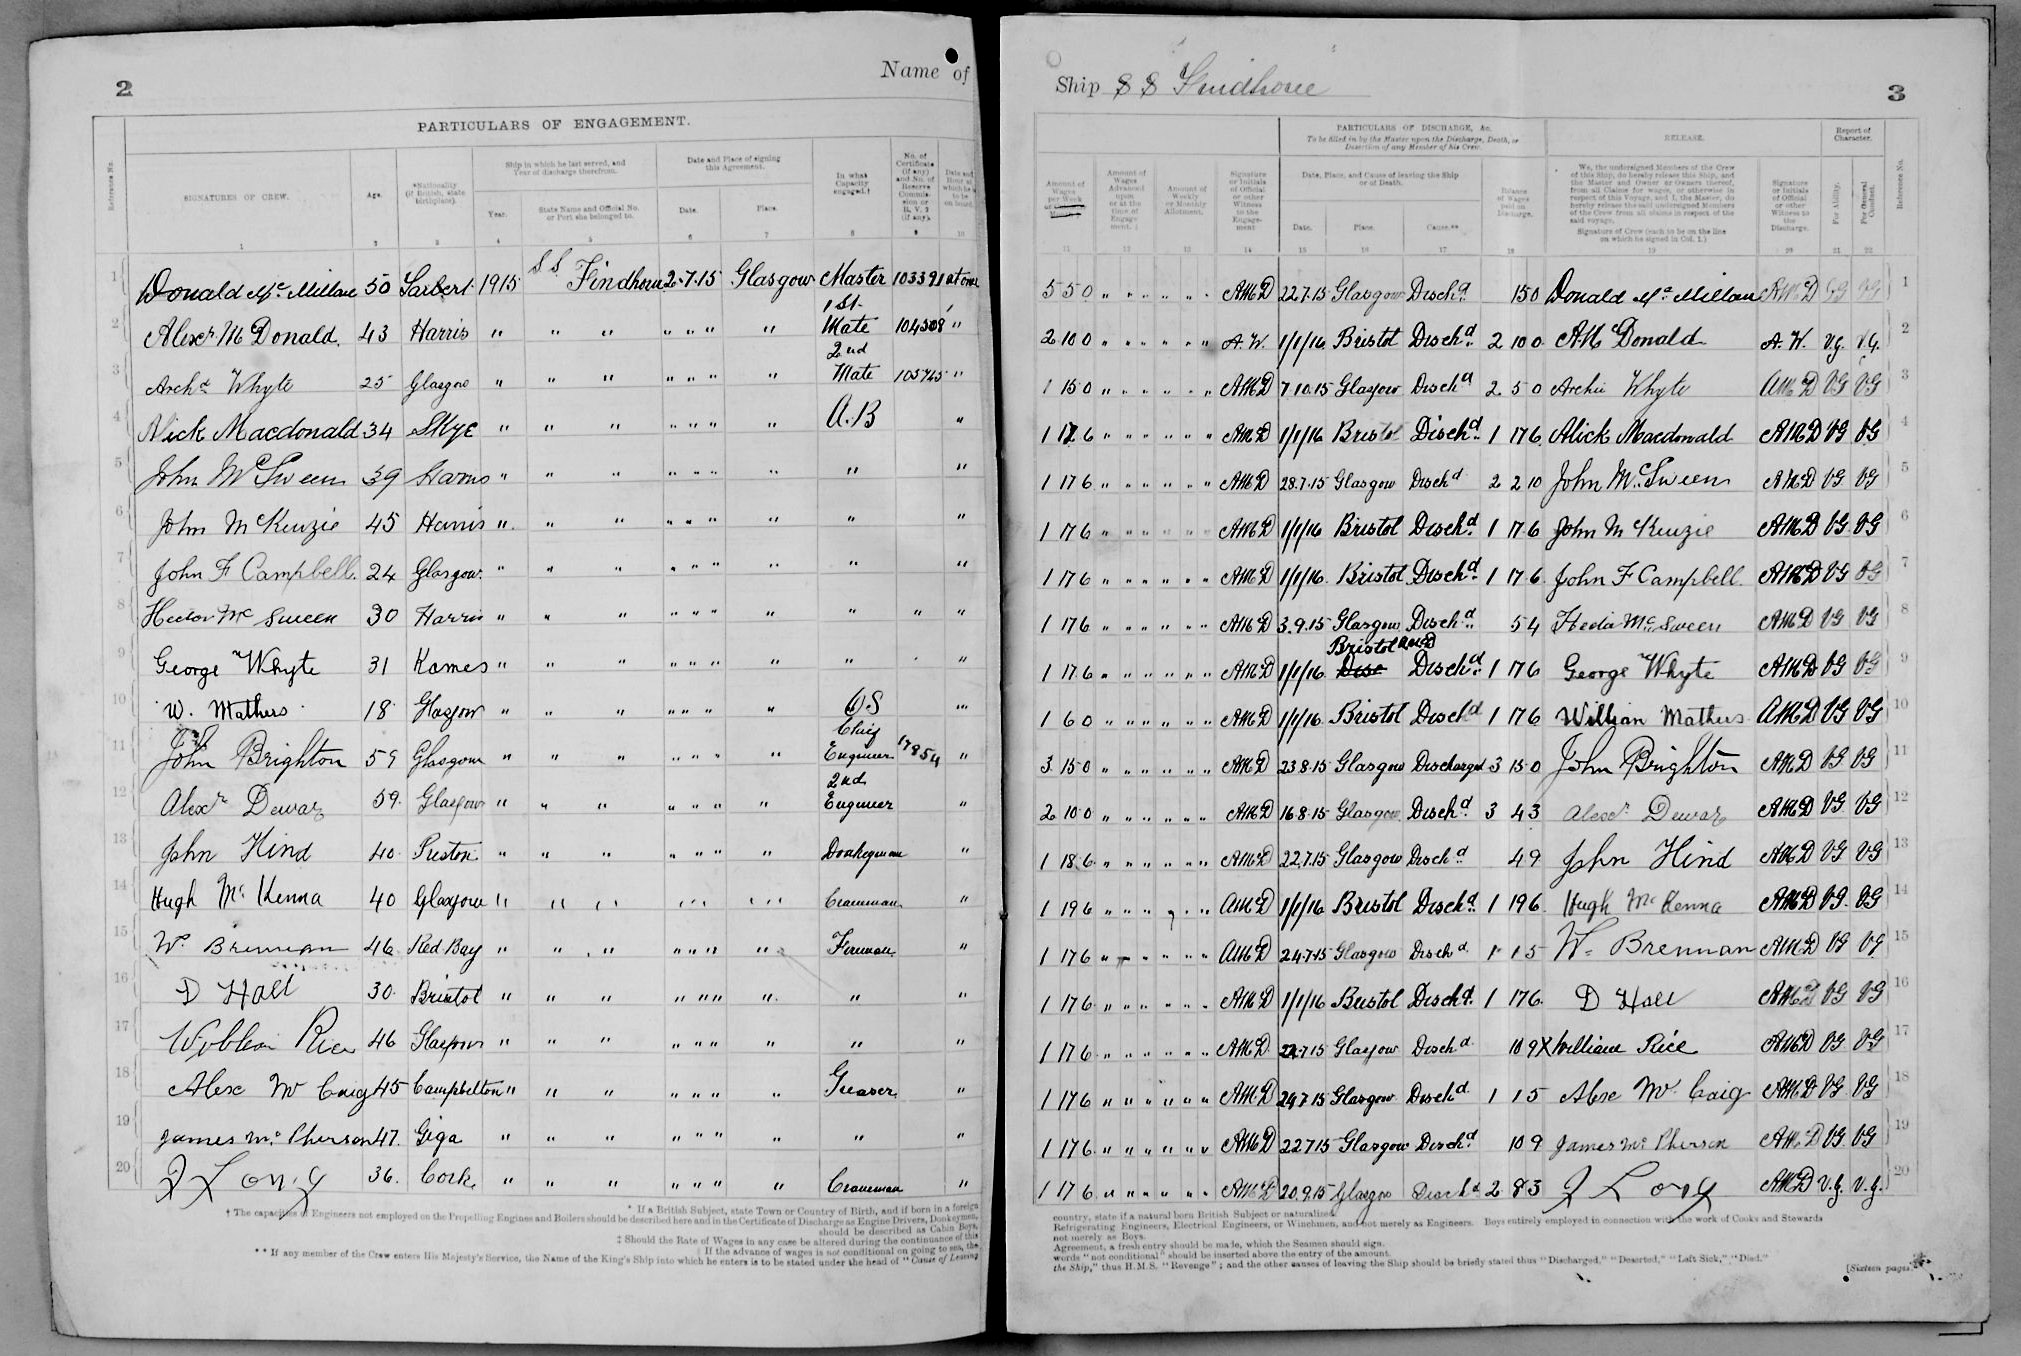 2
Name of
PARTICULARS OF ENGAGEMENT.
Reference No.
SIGNATURES OF CREW.
Age.
*Nationality (if British, state birthplace).
Ship in which he last served, and Year of discharge therefrom.
Year.
State Name and Official No. or Port she belonged to.
Date and Place of signing this Agreement.
Date.
Place.
In what Capacity engaged.†
No. of Certificate (if any) and No. of Reserve Commission or R.V.2 (if any).
1 2 3 4 5 6 7 8 9 10
1 Donald McMillan 50 Tarbert 1915 S.S. Findhorn 2.7.15 Glasgow Master 103391 at once
2 Alexr McDonald 43 Harris " " " " " " " 1st Mate 104508 "
3 Archd Whyte 25 Glasgow " " " " " " " 2nd Mate 105745 "
4 Alick Macdonald 34 Skye " " " " " " " A.B "
5 John McSween 39 Harris " " " " " " " " "
6 John McKenzie 45 Harris " " " " " " " " "
7 John F Campbell 24 Glasgow " " " " " " " " "
8 Hector Mc Sween 30 Harris " " " " " " " " " "
9 George Whyte 31 Kames " " " " " " " " "
10 W. Mathers 18 Glasgow " " " " " " " O.S "
11 John Brighton 59 Glasgow " " " " " " " Chief Engineer 17854 "
12 Alexr Dewar 59 Glasgow " " " " " " " 2nd Engineer "
13 John Hind 40 Preston " " " " " " " Donkeyman "
14 Hugh McKenna 40 Glasgow " " " " " " " Craneman "
15 Wm Brennan 46 Red Bay " " " " " " " Fireman "
16 D Hall 30 Bristol " " " " " " " " "
17 William Rice 46 Glasgow " " " " " " " " "
18 Alex McCaig 45 Campbelton " " " " " " " Greaser "
19 James McPherson 47 Giga " " " " " " " " "
20 J Long 36. Cork " " " " " " " Craneman "
* If a British Subject, state Town or Country of Birth, and if born in a foreign
† The capacities of Engineers not employed on the Propelling Engines and Boilers should be described here and in the Certificate of Discharge as Engine Drivers, Donkeymen,
should be described as Cabin Boys,
‡ Should the Rate of Wages in any case be altered during the continuance of this
If the advance of wages is not conditional on going to sea, the
** If any member of the Crew enters His Majesty's Service, the Name of the King's Ship into which he enters is to be stated under the head of "Cause of Leaving
Ship S S Findhorn
3
PARTICULARS OF DISCHARGE, &c.
To be filled in by the Master upon the Discharge, Death, or Desertion of any Member of his Crew.
RELEASE.
Report of Character.
Amount of Wages per Week
Amount of Wages Advanced upon or at the time of Engagement.‡
Amount of Weekly or Monthly Allotment.
Signature or Initials of Official or other Witness to the Engagement
Date, Place, and Cause of leaving the Ship or of Death.
Date.
Place.
Cause.**
Balance of Wages paid on Discharge.
We, the undersigned Members of the Crew of this Ship, do hereby release this Ship, and the Master and Owner or Owners thereof, from all Claims for wages, or otherwise in respect of this Voyage, and I, the Master, do hereby release the said undersigned Members of the Crew from all claims in respect of the said voyage.
Signature of Crew (each to be on the line on which he signed in Col. 1.)
Signature or Initials of Official or other Witness to the Discharge.
For Ability.
For General Conduct.
Reference No.
11 12 13 14 15 16 17 18 19 20 21 22
5 5 0 " " " " " " AMcD 22.7.15 Glasgow Dischd. 15 0 Donald McMillan AMcD VG VG 1
2 10 0 " " " " " " A.W. 1/1/16 Bristol Dischd 2 10 0 A McDonald A.W. V.G. V.G. 2
1 15 0 " " " " " " AMcD 7.10.15 Glasgow Dischd 2 5 0 Archie Whyte AMcD VG VG 3
1 17 6 " " " " " " AMcD 1/1/16 Bristol Dischd 1 17 6 Alick Macdonald AMcD VG VG 4
1 17 6 " " " " " " AMcD 28.7.15 Glasgow Dischd 2 2 10 John McSween AMcD VG VG 5
1 17 6 " " " " " " AMcD 1/1/16 Bristol Dischd 1 17 6 John McKenzie AMcD VG VG 6
1 17 6 " " " " " " AMcD 1/1/16 Bristol Dischd 1 17 6 John F Campbell AMcD VG VG 7
1 17 6 " " " " " " AMcD 3.9.15 Glasgow Dischd 5 4 Hector Mc Sween AMcD VG VG 8
1 17 6 " " " " " " AMcD 1/1/16 Disc Bristol AMcD Dischd 1 17 6 George Whyte AMcD VG VG 9
1 6 0 " " " " " " AMcD 1/1/16 Bristol Dischd 1 17 6 William Mathers AMcD VG VG 10
3 15 0 " " " " " " AMcD 23.8.15 Glasgow Discharged 3 15 0 John Brighton AMcD VG VG 11
2 10 0 " " " " " " AMcD 16.8.15 Glasgow Dischd 3 4 3 Alexr Dewar AMcD VG VG 12
1 18 6 " " " " " " AMcD 22.7.15 Glasgow Dischd 4 9 John Hind AMcD VG VG 13
1 19 6 " " " " " " AMcD 1/1/16 Bristol Dischd 1 19 6 Hugh McKenna AMcD VG VG 14
1 17 6 " " " " " " AMcD 24.7.15 Glasgow Dischd 1 1 5 Wm Brennan AMcD VG VG 15
1 17 6 " " " " " " AMcD 1/1/16 Bristol Dischd 1 17 6 D Hall AMcD VG VG 16
1 17 6 " " " " " " AMcD 22.7.15 Glasgow Dischd 10 9 X William Rice AMcD VG VG 17
1 17 6 " " " " " " AMcD 24.7.15 Glasgow Dischd 1 1 5 Alex McCaig AMcD VG VG 18
1 17 6 " " " " " " AMcD 22.7.15 Glasgow Dischd 10 9 James McPherson AMcD VG VG 19
1 17 6 " " " " " " AMcD 20.9.15 Glasgow Dischd 2 8 3 J Long AMcD V.G. V.G. 20
country, state if a natural born British Subject or naturalised.
Refrigerating Engineers, Electrical Engineers, or Winchmen, and not merely as Engineers. Boys entirely employed in connection with the work of Cooks and Stewards
not merely as Boys.
Agreement, a fresh entry should be made, which the Seamen should sign.
words "not conditional" should be inserted above the entry of the amount.
the Ship," thus H.M.S. "Revenge"; and the other causes of leaving the Ship should be briefly stated thus "Discharged," "Deserted," "Left Sick," "Died."
[Sixteen pages.